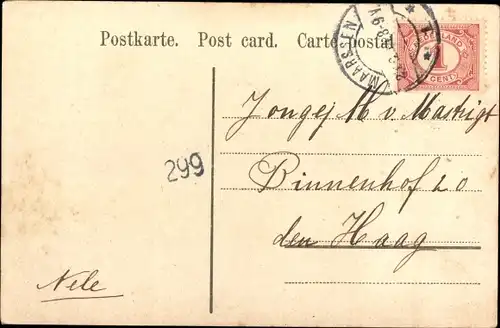 Postkarte. Post card. Carte postal
MAARSSEN
1
CENT
Jongej M v Mastrigt
299
Binnenhof 20
den Haag
Nele